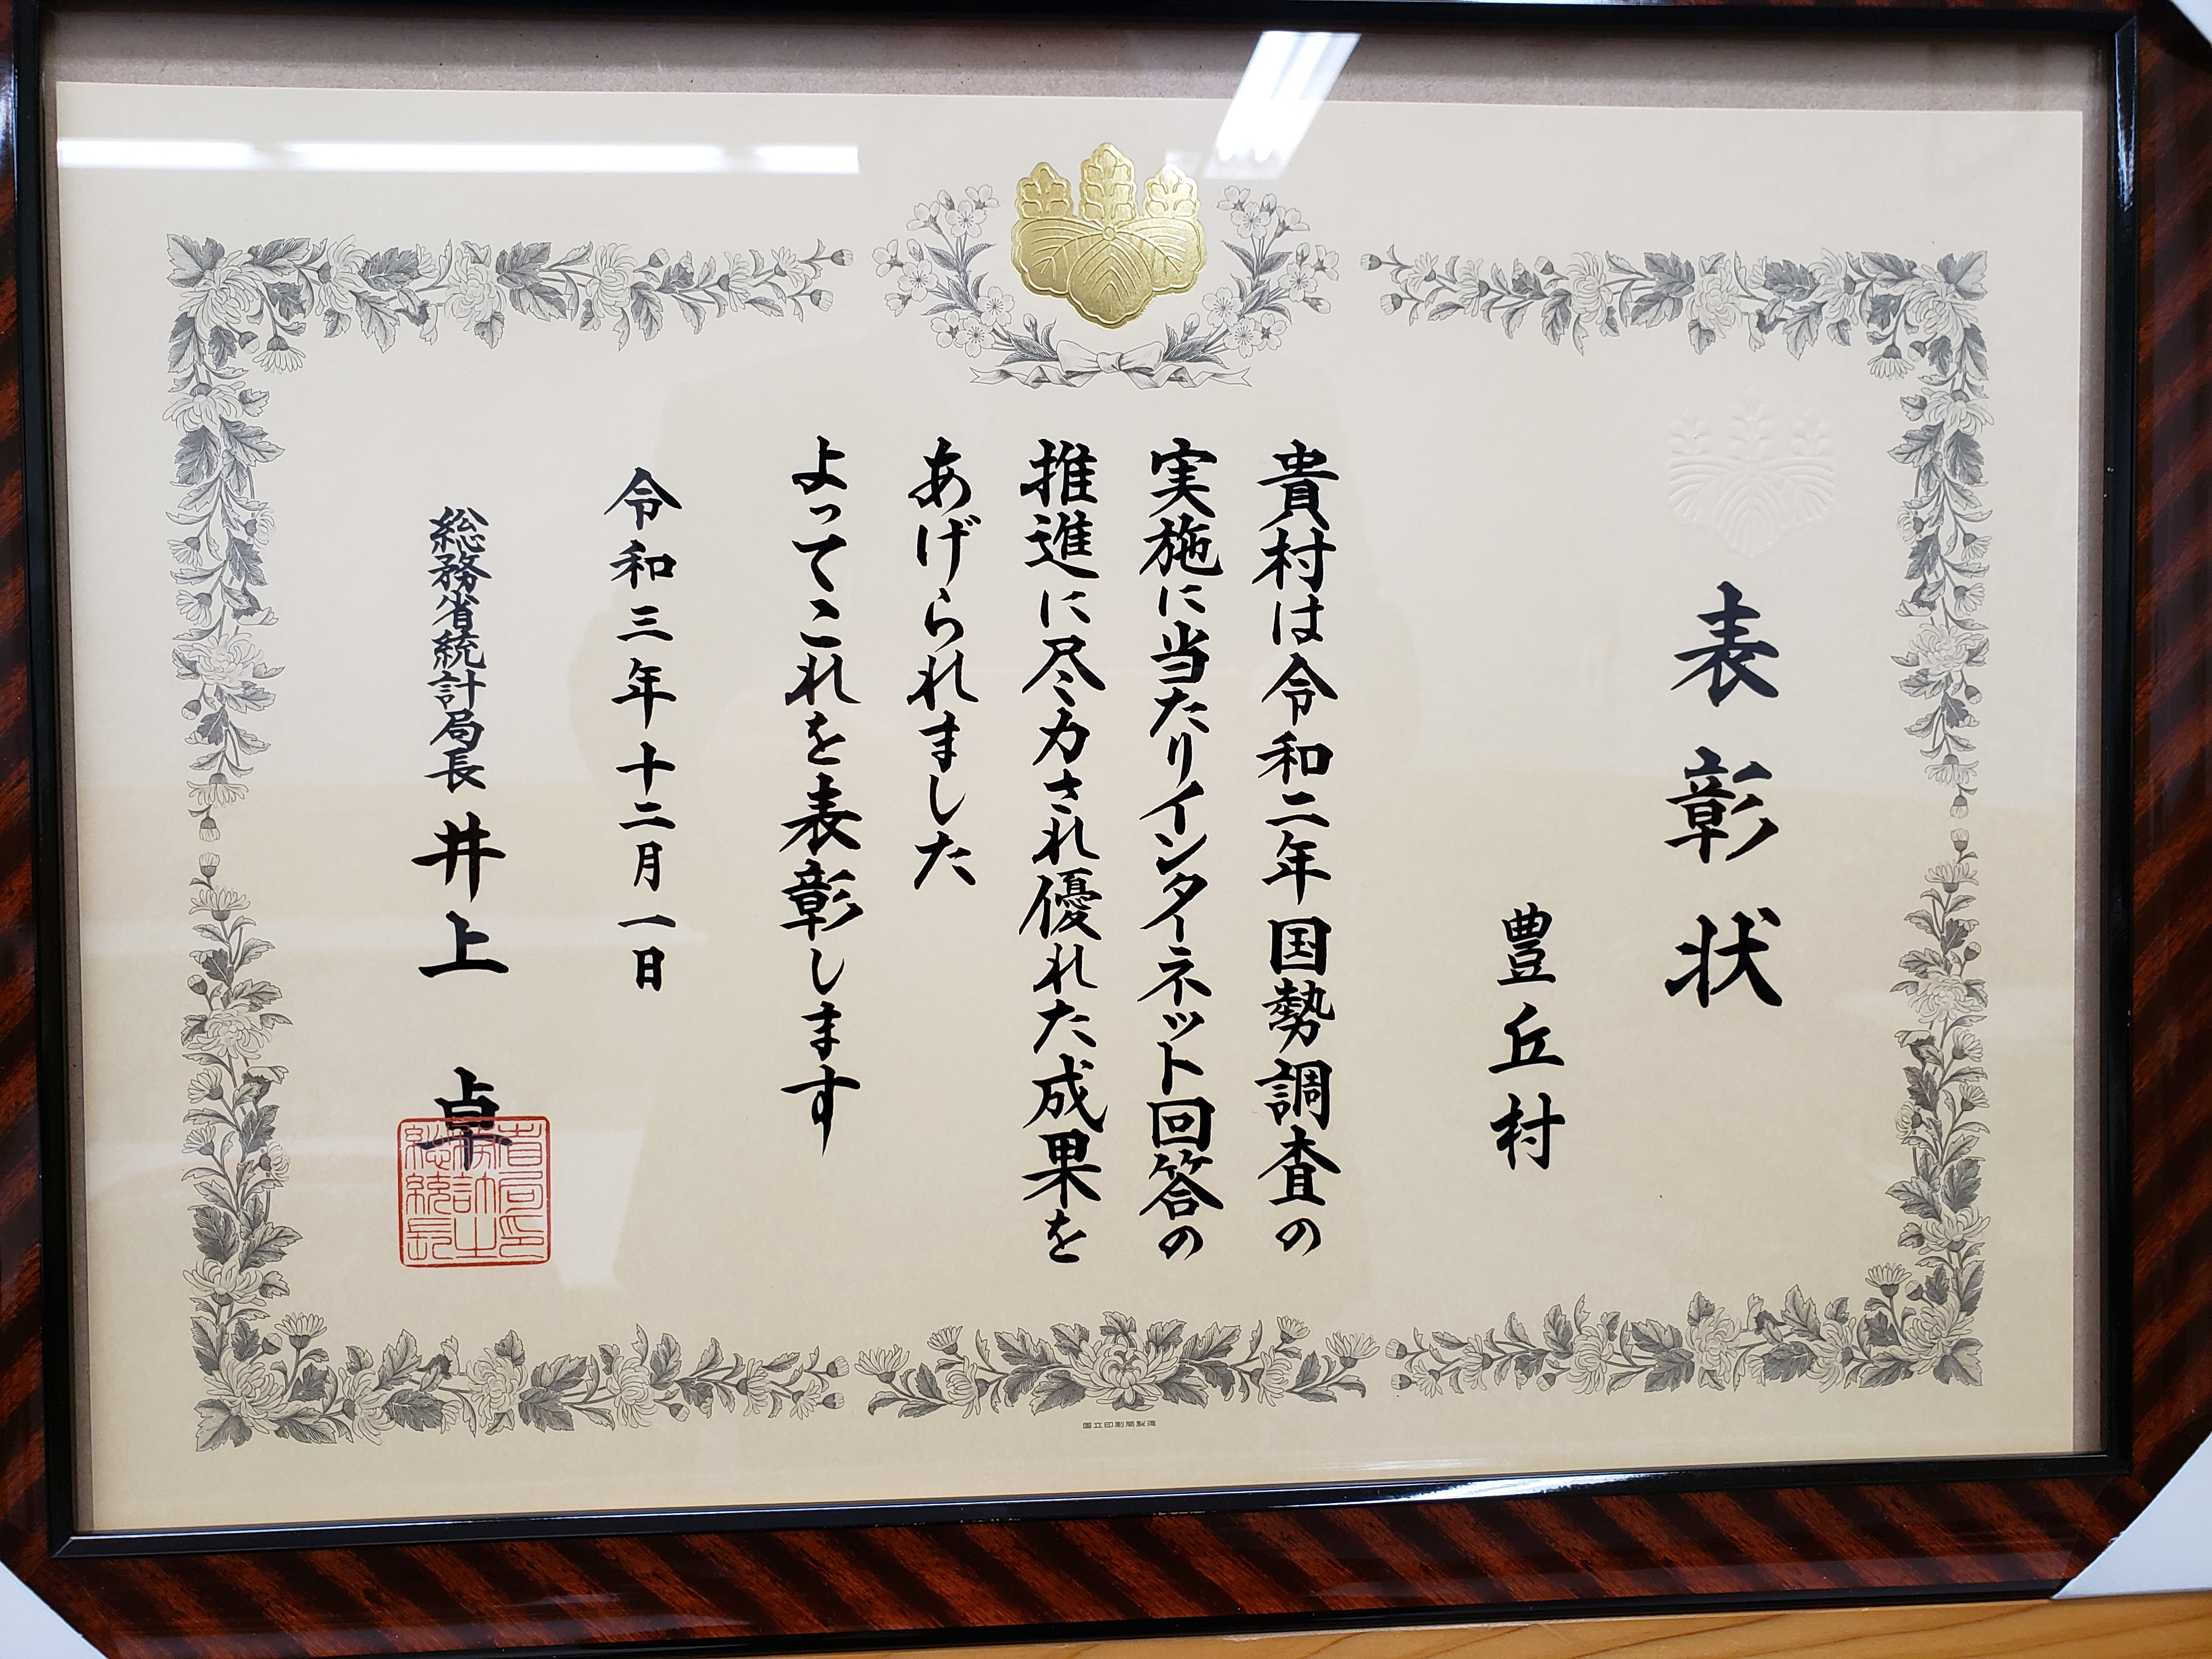 表彰状
豊丘村
貴村は令和二年国勢調査の
実施に当たりインターネット回答の
推進に尽力され優れた成果を
あげられました
よってこれを表彰します
令和三年十二月一日
総務省統計局長 井上 卓
総務省統計局長之印
国立印刷局製造